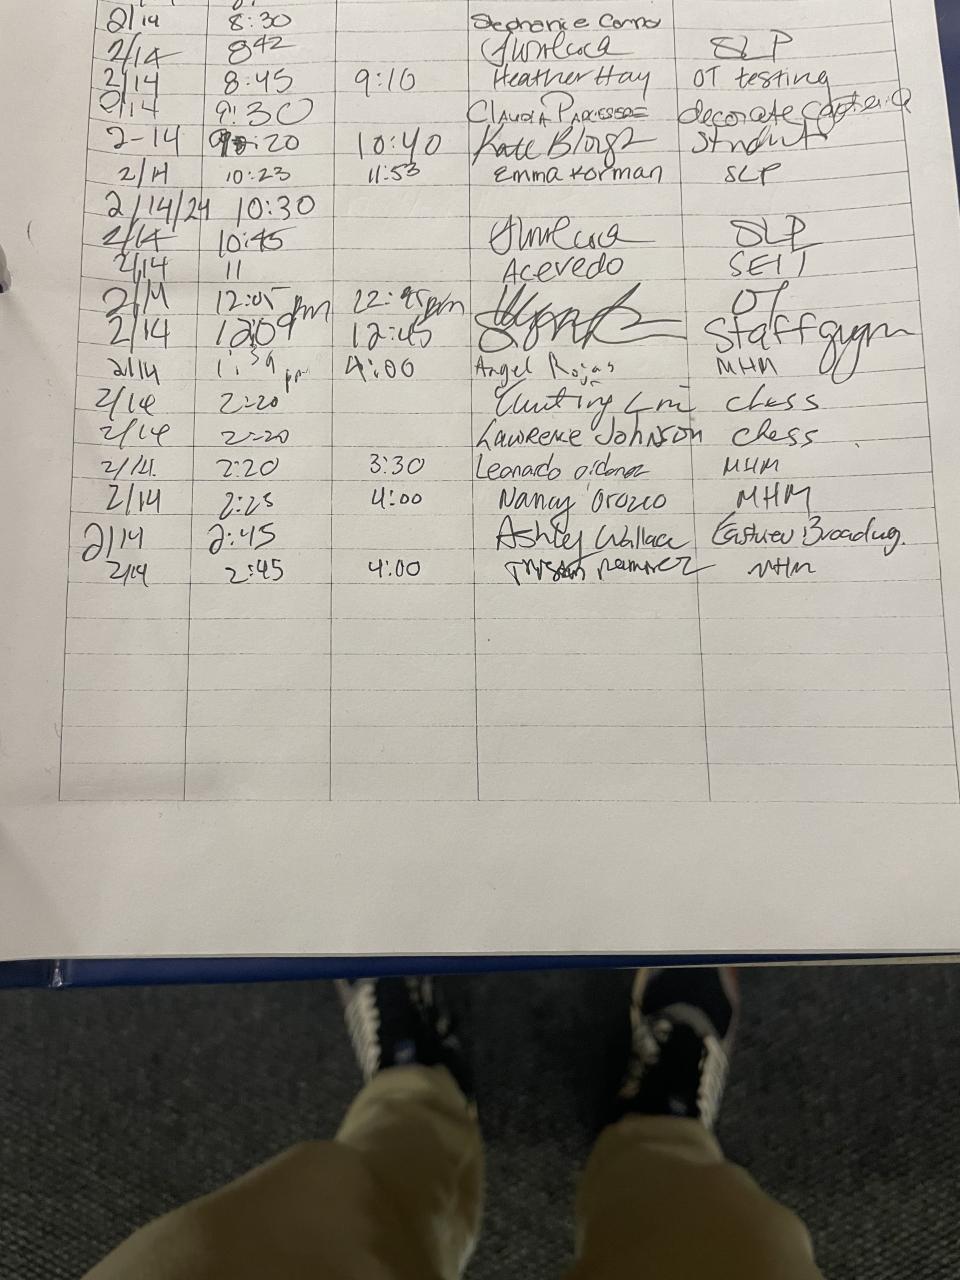 2/14 8:30 Stephanie
2/14 8:42 SLP
2/14 8:45 9:10 Heather Hay OT testing
2/14 9:30 Claudia decorate
2-14 10:20 10:40 Kate
2/14 10:23 11:53 Emma Korman SLP
2/14/24 10:30
2/14 10:45 SLP
2/14 11 Acevedo SEIT
2/14 12:05 pm pm OT
2/14 12:09 12:45 Staff gym
2/14 1:39 pm 4:00 Angel Rojas MHM
2/14 2:20 chess
2/14 2:20 Lawrence Johnson chess
2/14. 2:20 3:30 Leonardo MHM
2/14 2:25 4:00 Nancy Orozco MHM
2/14 2:45 Ashley Wallace
2/14 2:45 4:00 Ramirez MHM